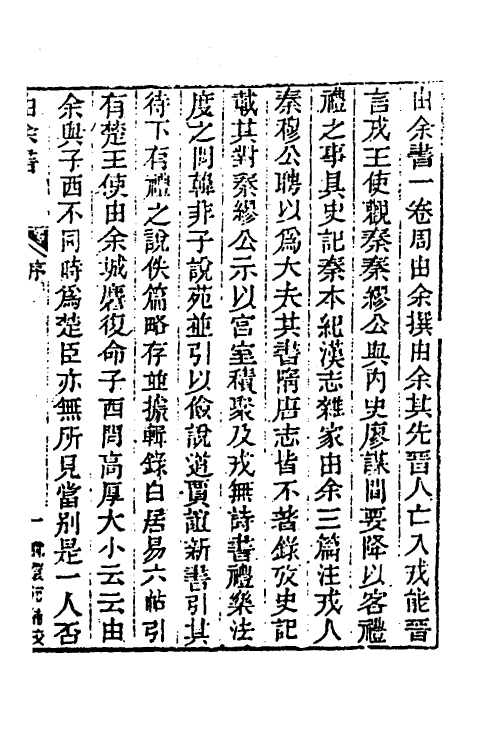 由余書一卷周由余撰由余其先晉人亡入戎能晉
言戎王使觀秦秦繆公與內史廖謀間要降以客禮
禮之事具史記秦本紀漢志雜家由余三篇注戎人
秦穆公聘以爲大夫其書隋唐志皆不著錄攷史記
載其對秦繆公示以宮室積聚及戎無詩書禮樂法
度之問韓非子說苑並引以儉說道賈誼新書引其
待下有禮之說佚篇略存並據輯錄白居易六帖引
有楚王使由余城麐復命子西問高厚大小云云由
余與子西不同時爲楚臣亦無所見當别是一人否
由余書
序
一